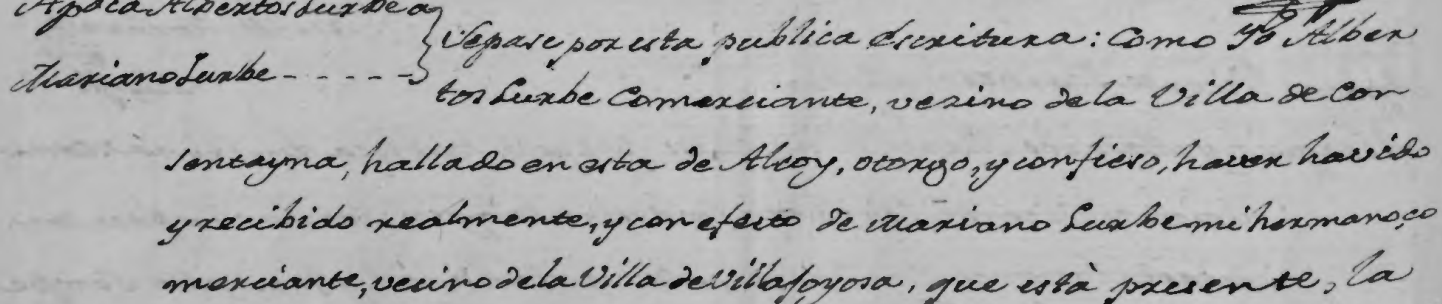 Apoca Albertos Surbe a
Mariano Surbe - - - - -
Sepase por esta publica escritura: Como Yo Alber
tos Surbe Comerciante, vezino de la Villa de Con
sentayna, hallado en esta de Alcoy, otorgo, y confieso, haver havido
y recibido realmente, y con efecto de Mariano Surbe mi hermano, co
merciante, vecino de la Villa de Villajoyosa, que està presente, la